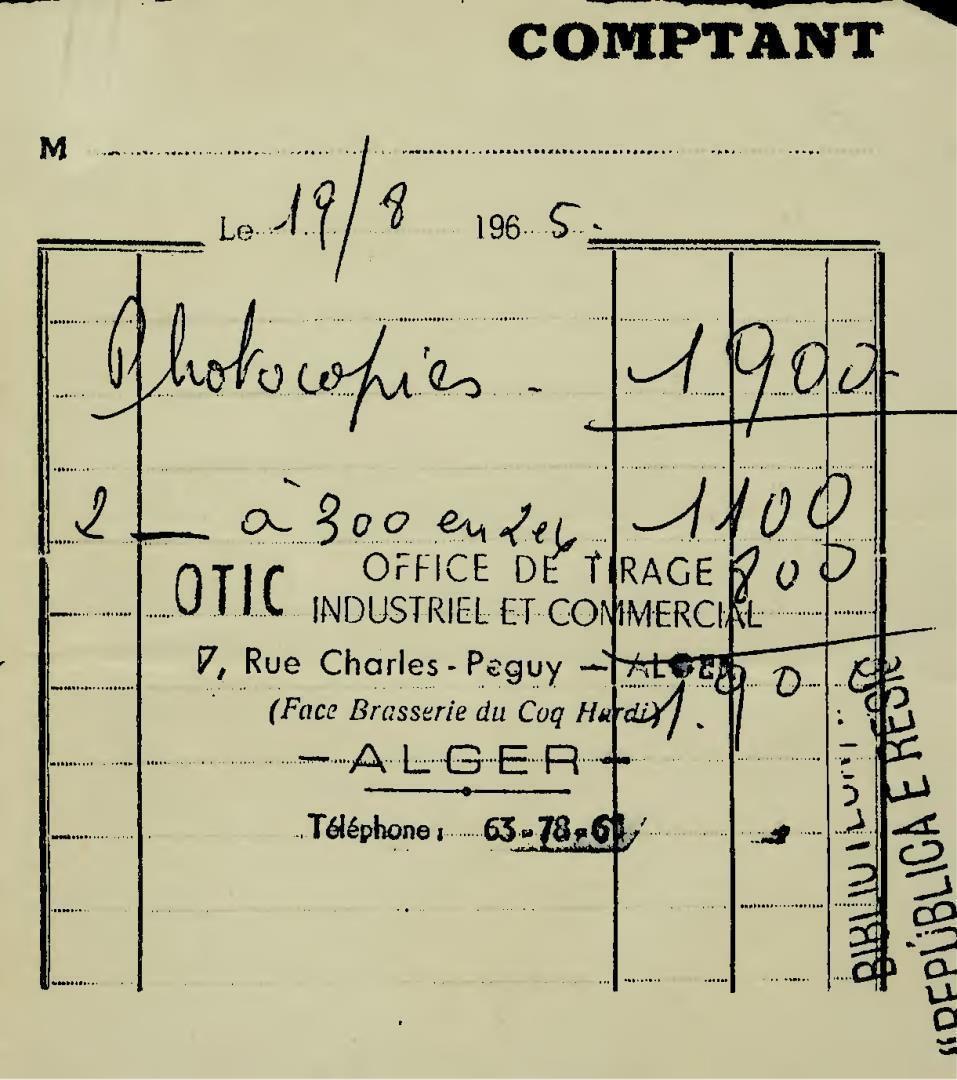 COMPTANT
M
Le 19/8 1965.
Photocopies - 1900-
2 — à 300 en 1100
800
OTIC OFFICE DE TIRAGE
INDUSTRIEL ET COMMERCIAL
7, Rue Charles-Peguy — ALGER
1.900
(Face Brasserie du Coq Hardi)
— ALGER —
Téléphone: 63-78-61
"REPÚBLICA E RESIS